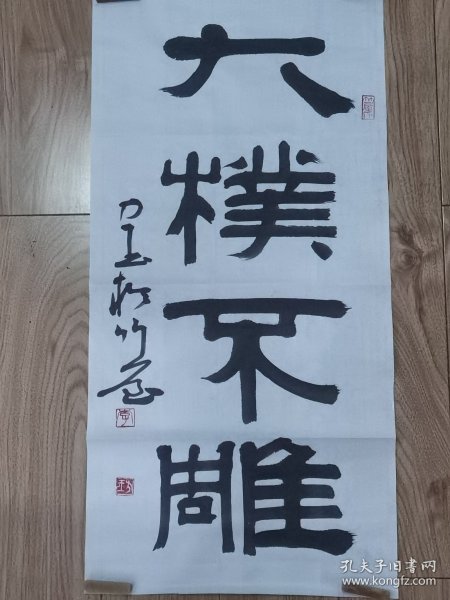 大樸不雕
松竹
孔夫子旧书网
www.kongfz.com